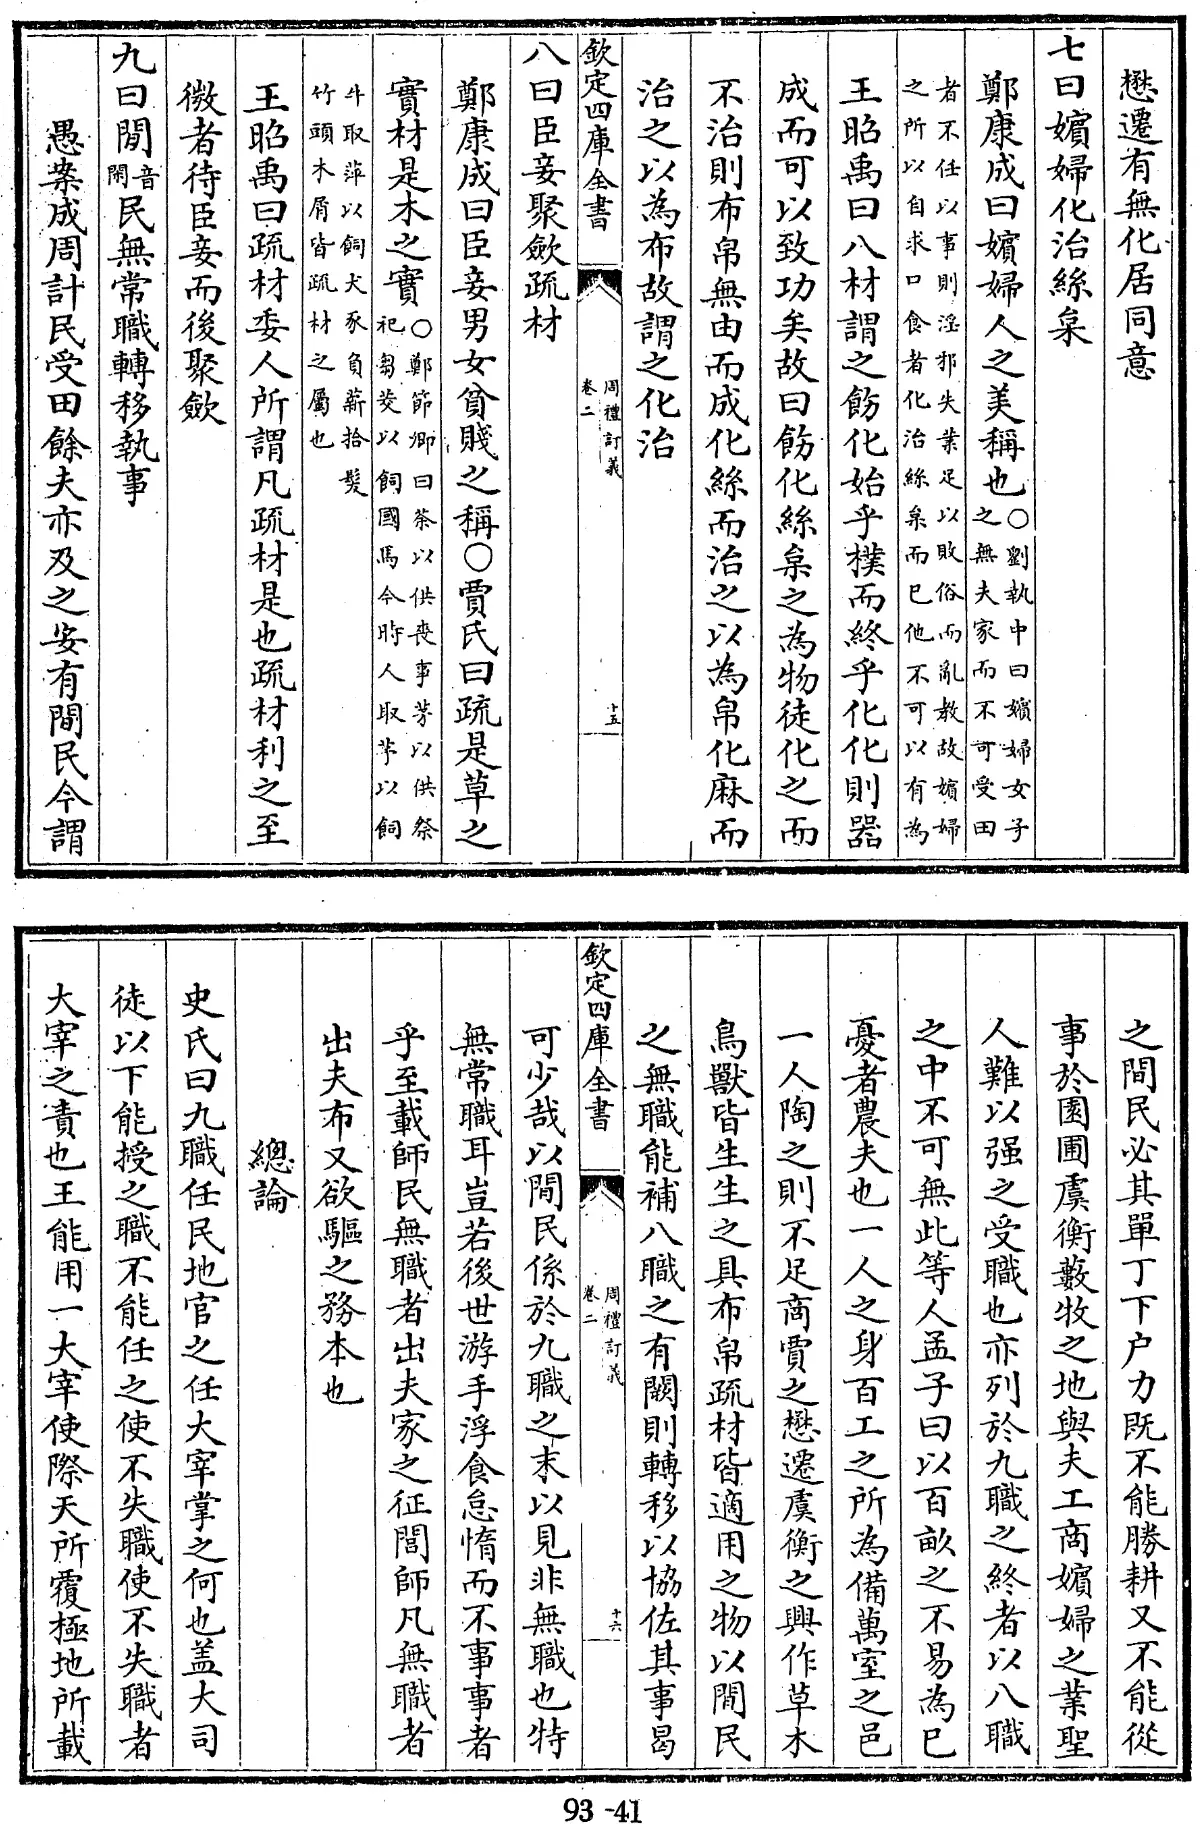 懋遷有無化居同意
七曰嬪婦化治絲枲
鄭康成曰嬪婦人之美稱也○劉執中曰嬪婦女子之無夫家而不可受田
者不任以事則淫邪失業足以敗俗而亂教故嬪婦之所以自求口食者化治絲枲而已他不可以有為
王昭禹曰八材謂之飭化始乎樸而終乎化化則器
成而可以致功矣故曰飭化絲枲之為物徒化之而
不治則布帛無由而成化絲而治之以為帛化麻而
治之以為布故謂之化治
欽定四庫全書 周禮訂義 卷二 十五
八曰臣妾聚斂疏材
鄭康成曰臣妾男女貧賤之稱○賈氏曰疏是草之
實材是木之實○鄭節卿曰荼以供喪事茅以供祭祀芻茭以飼國馬今時人取芧以飼
牛取萍以飼犬豕負薪拾髮竹頭木屑皆疏材之屬也
王昭禹曰疏材委人所謂凡疏材是也疏材利之至
微者待臣妾而後聚斂
九曰閒音閑民無常職轉移執事
愚案成周計民受田餘夫亦及之安有閒民今謂
之閒民必其單丁下户力既不能勝耕又不能從
事於園圃虞衡藪牧之地與夫工商嬪婦之業聖
人難以强之受職也亦列於九職之終者以八職
之中不可無此等人孟子曰以百畝之不易為已
憂者農夫也一人之身百工之所為備萬室之邑
一人陶之則不足商賈之懋遷虞衡之興作草木
鳥獸皆生生之具布帛疏材皆適用之物以閒民
之無職能補八職之有闕則轉移以協佐其事曷
欽定四庫全書 周禮訂義 卷二 十六
可少哉以閒民係於九職之末以見非無職也特
無常職耳豈若後世游手浮食怠惰而不事事者
乎至載師民無職者出夫家之征閭師凡無職者
出夫布又欲驅之務本也
總論
史氏曰九職任民地官之任大宰掌之何也盖大司
徒以下能授之職不能任之使不失職使不失職者
大宰之責也王能用一大宰使際天所覆極地所載
93-41